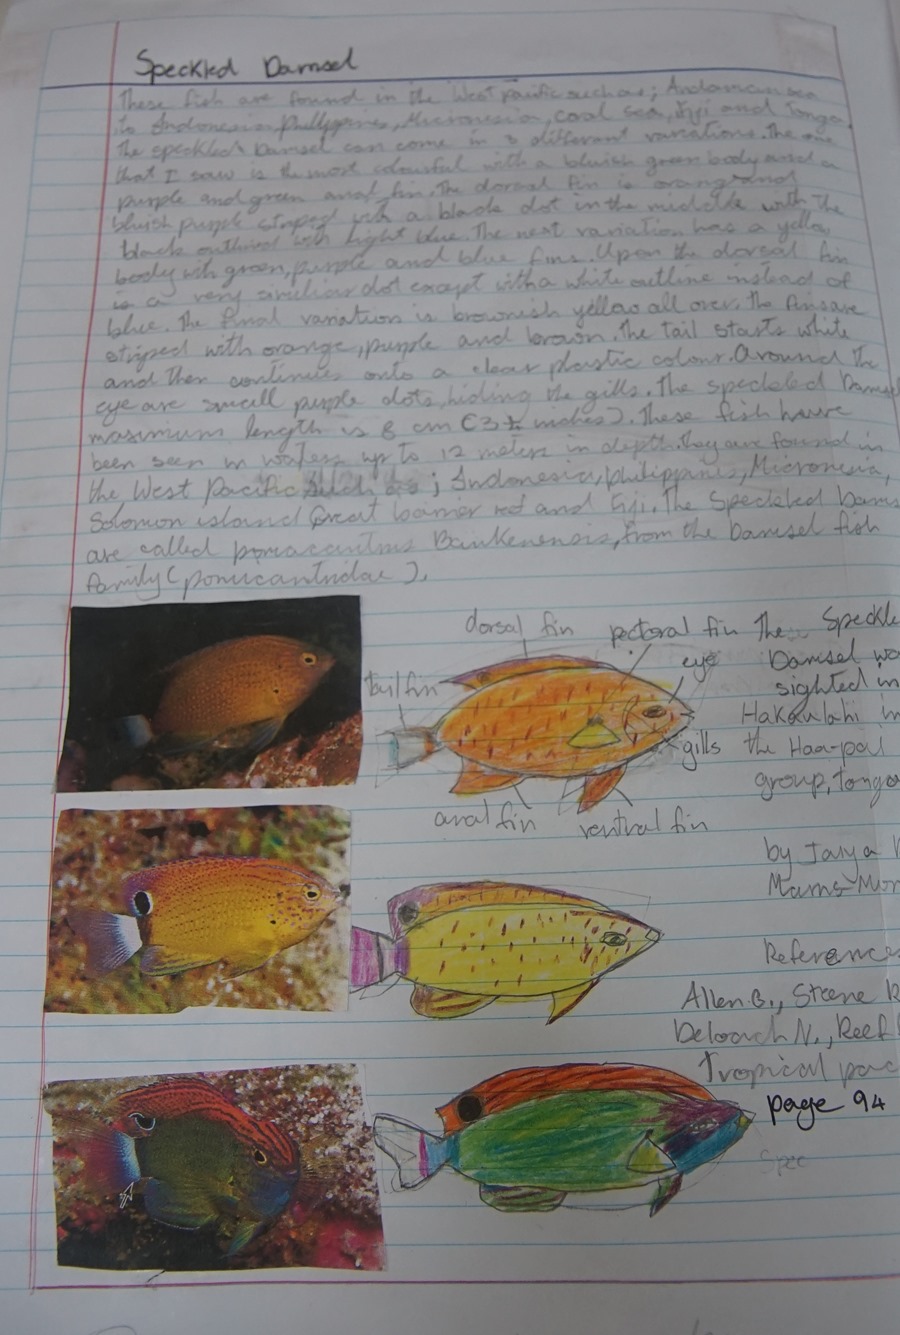 Speckled Damsel
These fish are found in the West pacific such as; Andaman sea
to Indonesia, Philippines, Micronesia, coral sea, Fiji and Tonga
The speckled Damsel can come in 3 different variations. The one
that I saw is the most colourful with a bluish green body and a
purple and green anal fin. The dorsal fin is orange and
bluish purple striped with a black dot in the middle with the
black outlined with light blue. The next variation has a yellow
body with green, purple and blue fins. Upon the dorsal fin
is a very similiar dot except with a white outline instead of
blue. The final variation is brownish yellow all over, the fins are
striped with orange, purple and brown. The tail starts white
and then continues onto a clear plastic colour. Around the
eye are small purple dots, hiding the gills. The speckled Damsel
maximum length is 8 cm (3 ½ inches). These fish have
been seen in waters up to 12 meters in depth. They are found in
the West Pacific such as; Indonesia, philippines, Micronesia,
Solomon island Great barrier ref and Fiji. The Speckled Dams
are called pomacentrus Bankenensis, from the Damsel fish
family (pomucantridae).
dorsal fin
pectoral fin
eye
tail fin
gills
anal fin
ventral fin
The Speckle
Damsel wa
sighted in
in
the Haa-pai
group, Tonga
by Taiya
Reference
Allen.G., Steene R
Deloach N., Reef
Tropical pac
page 94
Spec